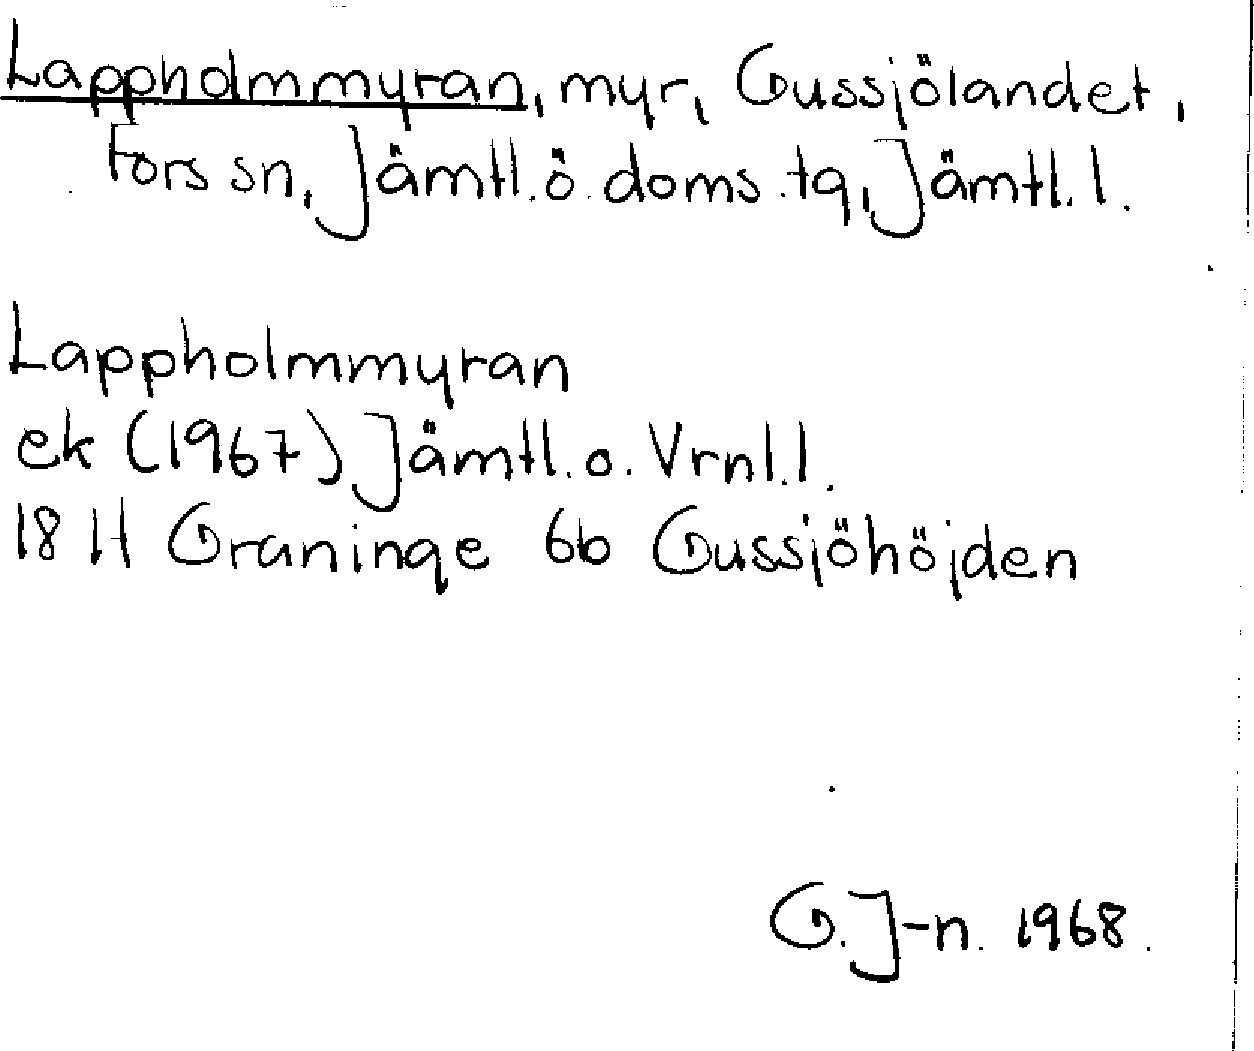 Lappholmmyran, myr, Gussjölandet,
Fors sn, Jämtl. ö. doms. tg, Jämtl. l.
Lappholmmyran
ek (1967) Jämtl. o. Vrnl. l.
18 H Graninge 6b Gussjöhöjden
G. J-n. 1968.